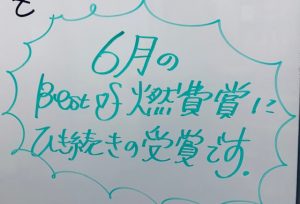 と
6月の
Best of 燃費賞に
ひき続きの受賞です.